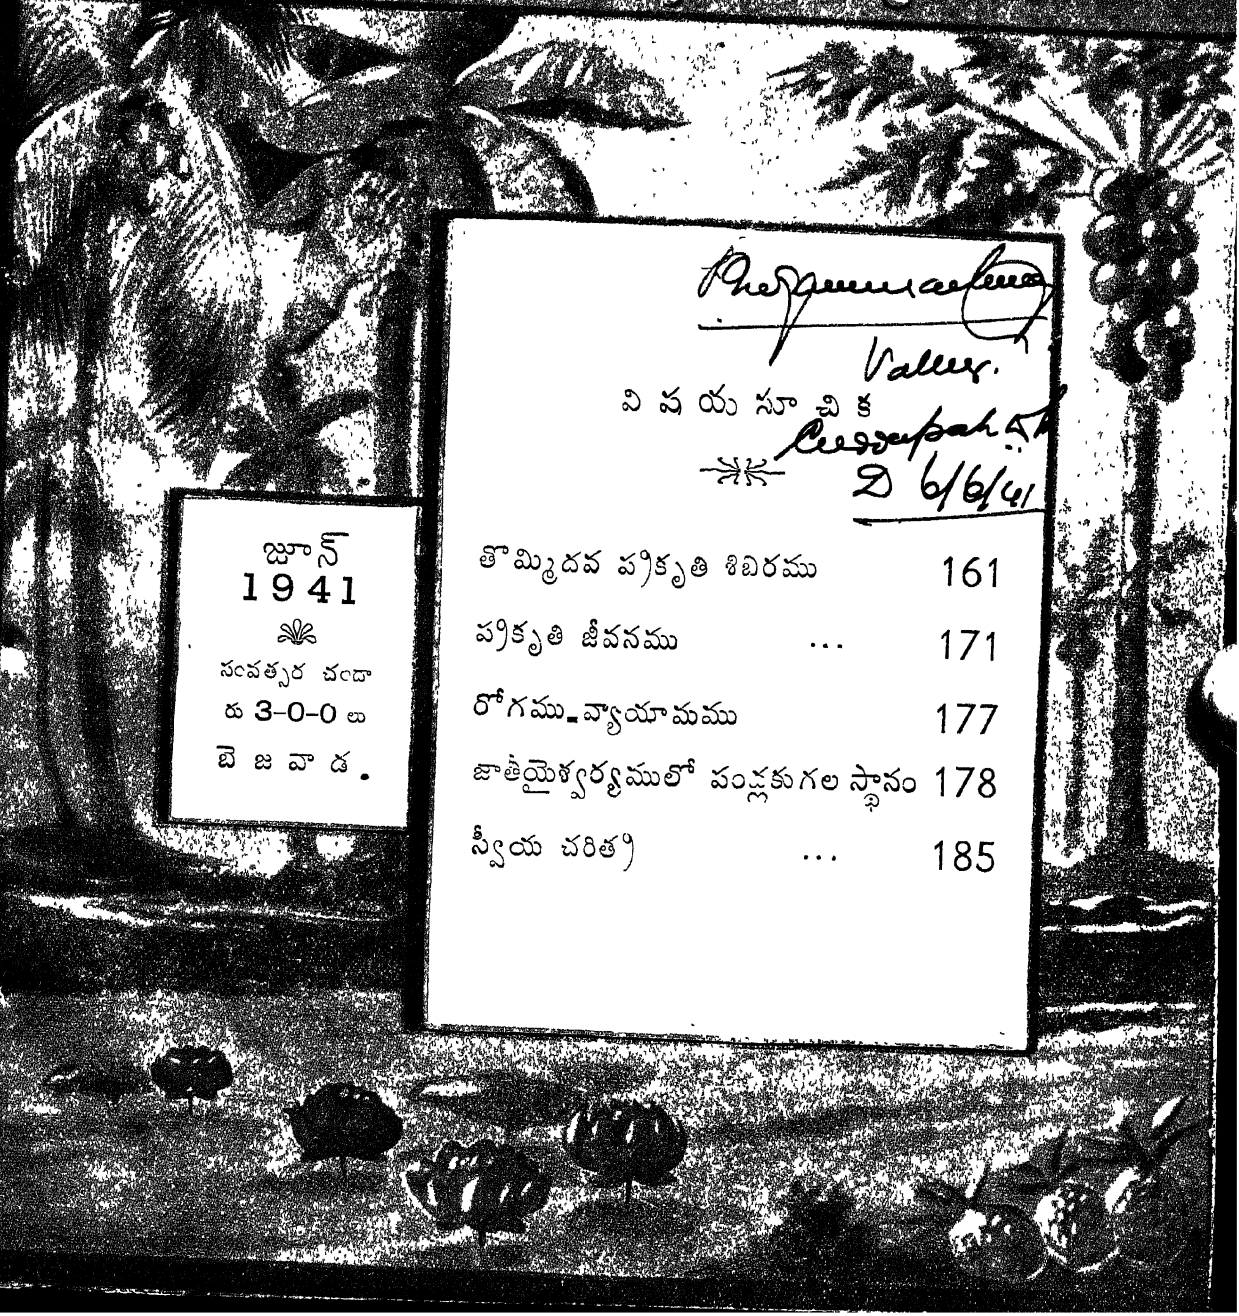 జూన్
1941
సంవత్సర చందా
రు 3-0-0 లు
బెజవాడ.
Vallur.
విషయసూచిక
D 6/6/41
తొమ్మిదవ ప్రకృతి శిబిరము 161
ప్రకృతి జీవనము ... 171
రోగము-వ్యాయామము 177
జాతీయైశ్వర్యములో పండ్లకుగల స్థానం 178
స్వీయ చరిత్ర ... 185